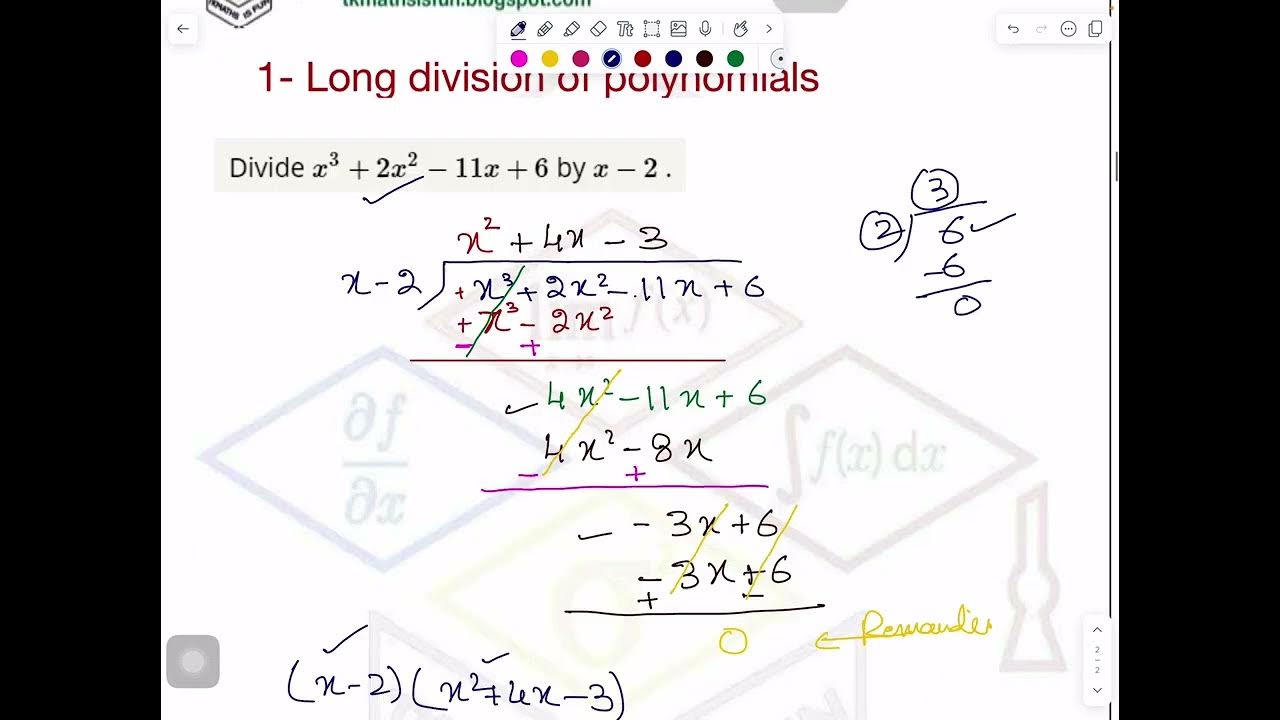 tkmathsisfun.blogspot.com
MATHS IS FUN
1- Long division of polynomials
Divide x³ + 2x² − 11x + 6 by x − 2 .
x² + 4x − 3
x − 2 ) + x³ + 2x² − 11x + 6
+ x³ − 2x²
− +
4x² − 11x + 6
4x² − 8x
− +
− 3x + 6
− 3x + 6
+ −
0 ← Remainder
(x − 2)(x² + 4x − 3)
3
2 ) 6
−6
0
lim f(x)
∂f
∂x
∫ f(x) dx
σ
Tt
2
2